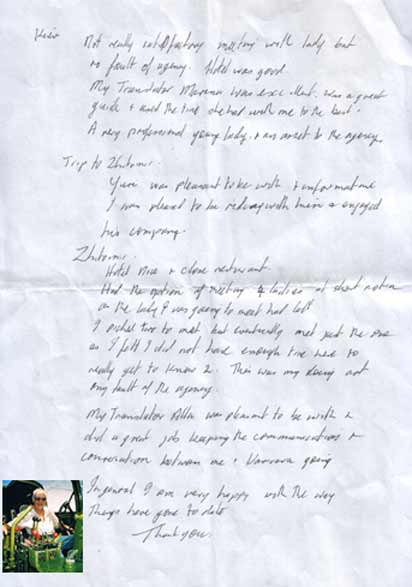 Kiev
Not really satisfactory meeting with lady but
no fault of agency. Hotel was good.
My Translator Marina was excellent. was a great
guide & used the time she had with me to the best.
A very professional young lady, & an asset to the agency.
Trip to Zhitomir.
Yuri was pleasant to be with & informative
I was pleased to be riding with him & enjoyed
his company.
Zhitomir.
Hotel nice & close restaurant.
Had the option of meeting 4 ladies at short notice
as the lady I was going to meet had left
I picked two to meet but eventually met just the one
as I felt I did not have enough time here to
really get to know 2. This was my doing not
any fault of the agency.
My Translator Alla was pleasant to be with &
did a great job keeping the communications &
conversation between me & Varvara going
In general I am very happy with the way
Things have gone to date
Thank you.